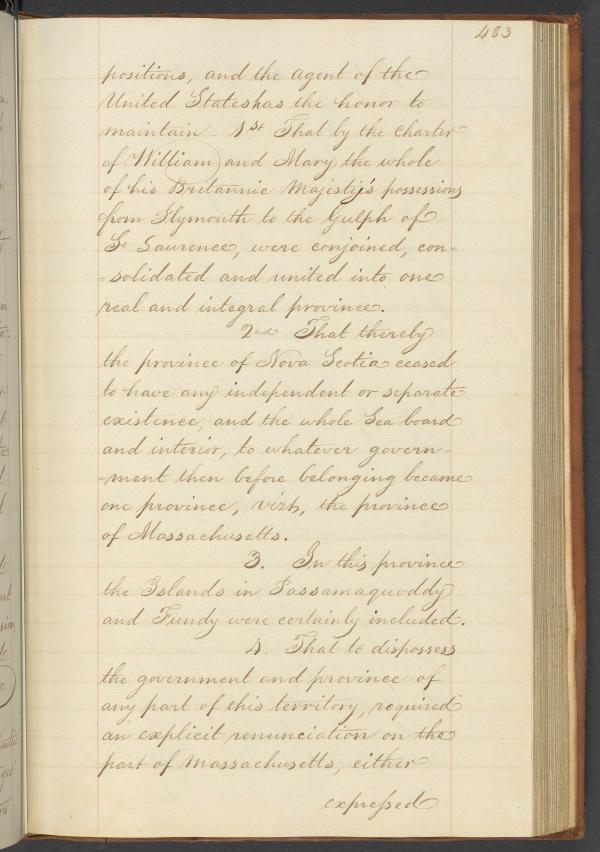 483
positions, and the agent of the
United States has the honor to
maintain - 1st That by the Charter
of William and Mary the whole
of his Britannic Majesty's possessions
from Plymouth to the Gulph of
St Laurence, were conjoined, con-
-solidated and united into one
real and integral province.
2nd That thereby
the province of Nova Scotia ceased
to have any independent or separate
existence, and the whole Sea board
and interior, to whatever govern-
-ment then before belonging became
one province, vizt, the province
of Massachusetts.
3. In this province
the Islands in Passamaquoddy
and Fundy were certainly included.
4. That to disposess
the government and province of
any part of this territory, required
an explicit renunciation on the
part of Massachusetts, either
expressed